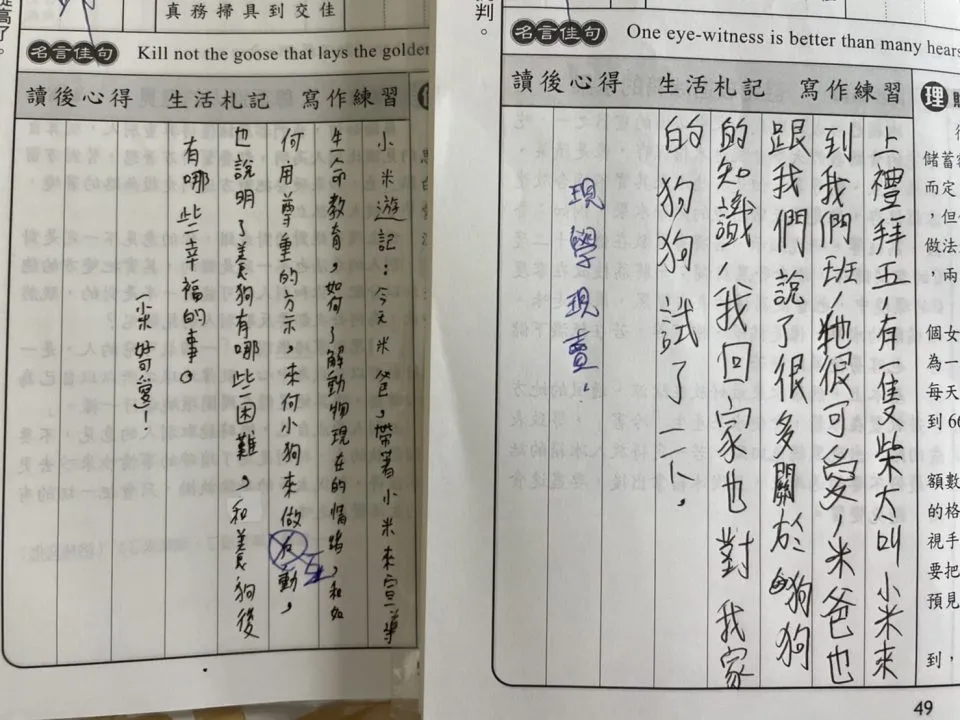 提高了。
真務掃具到交佳
名言佳句 Kill not the goose that lays the golden
讀後心得 生活札記 寫作練習
小米遊記：今天米爸，帶著小米來宣導
生命教育，如何了解動物現在的情緒，和如
何用尊重的方示，來何小狗來做互動，
也說明了養狗有哪些困難，和養狗後
有哪些幸福的事。
小米好可愛！
批判。
名言佳句 One eye-witness is better than many hears
讀後心得 生活札記 寫作練習
上禮拜五，有隻柴太叫小米來
到我們班，牠很可愛，米爸也
跟我們說了很多關於狗狗
的知識，我回家也對我家
的狗狗試了一下。
現學現賣.
理
儲蓄
而定
但
做法
兩
個女
為一
每天
到66
額數
的格
視手
要把
預見
到，
49